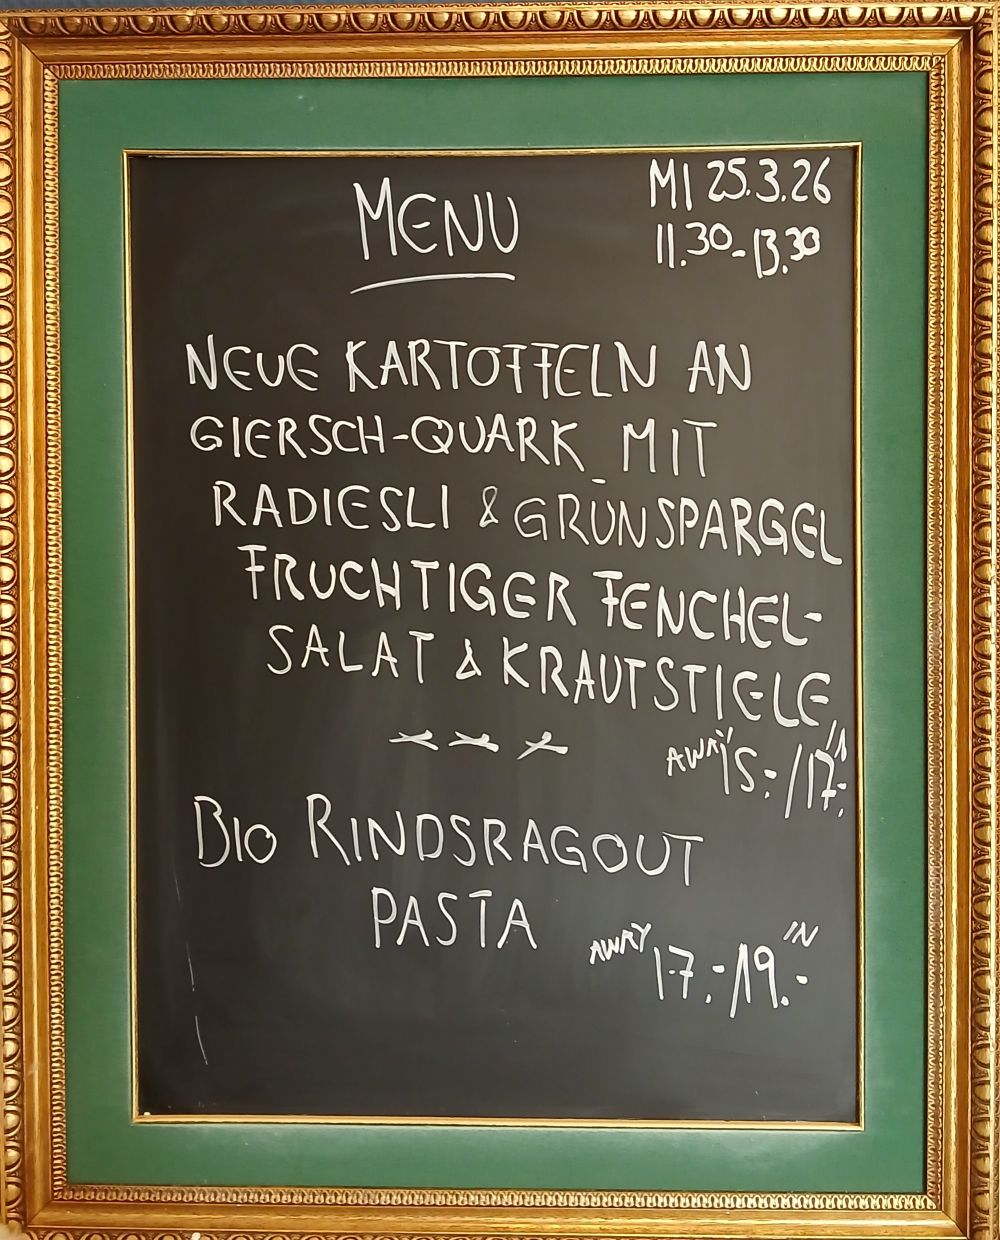 MENU
MI 25.3.26
11.30-13.30
NEUE KARTOFFELN AN
GIERSCH-QUARK MIT
RADIESLI & GRÜNSPARGEL
FRUCHTIGER FENCHEL-
SALAT & KRAUTSTIELE
AWAY 15.-/17.- IN
BIO RINDSRAGOUT
PASTA
AWAY 17.-/19.- IN